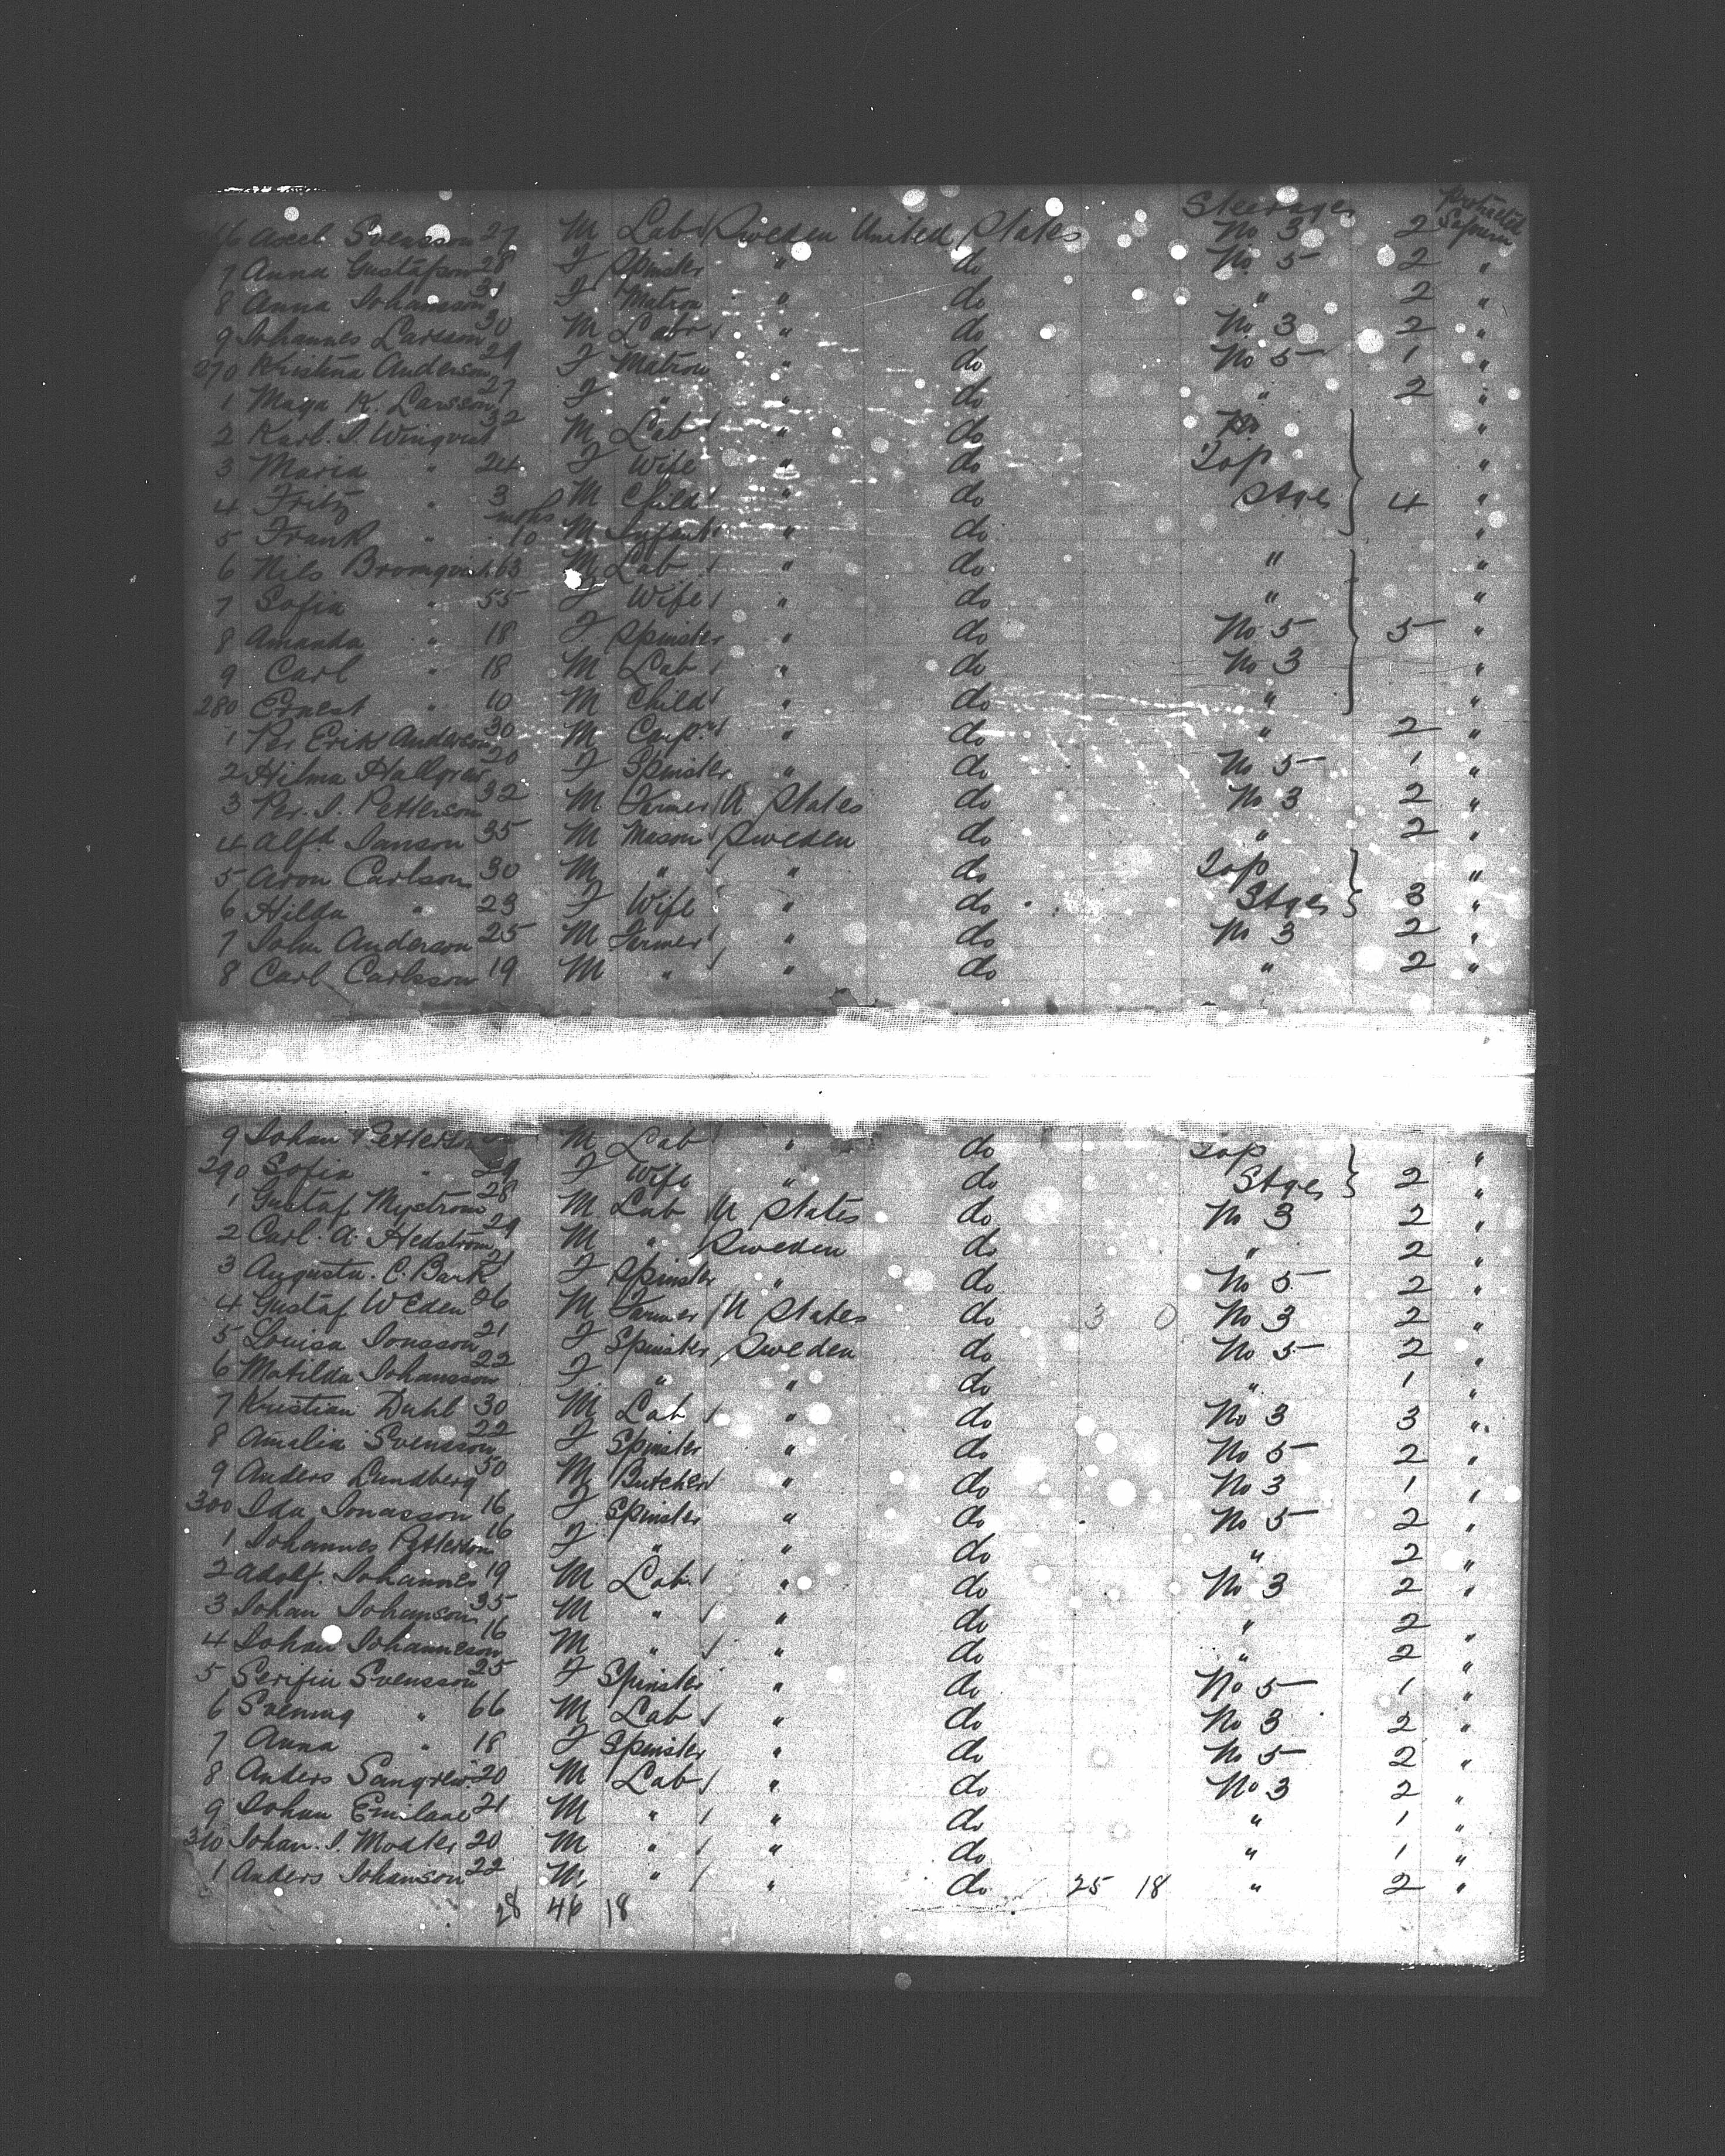 Steerage Protracted Sojourn
66 Axel Svensson 27 M Lab Sweden United States No 3 2
7 Anna Gustafson 28 F Spinster " do No 5 2 "
8 Anna Johanson 31 F Matron " do " 2 "
9 Johannes Larsson 30 M Labr " do No 3 2 "
270 Kristina Anderson 29 F Matron " do No 5 1 "
1 Maya K. Larsson 27 F " " do " 2 "
2 Karl. J. Winqvist 32 M Lab " do "
3 Maria " 24 F Wife " do Top "
4 Fritz " 3 M Child " do Stge 4 "
5 Frank " mohs 10 M Infant " do "
6 Nils Bromqvist 63 M Lab " do " "
7 Sofia " 55 F Wife " do " "
8 Amanda " 18 F Spinster " do No 5 5 "
9 Carl " 18 M Lab " do No 3 "
280 Ernest " 10 M Child " do " "
1 Per Erik Anderson 30 M Carp " do " 2 "
2 Hilma Hallgren 20 F Spinster " do No 5 1 "
3 Per. J. Petterson 32 M Farmer U States do No 3 2 "
4 Alfd Janson 35 M Mason Sweden do " 2 "
5 Aron Carlson 30 M " " do Top "
6 Hilda " 23 F Wife " do Stge 3 "
7 John Anderson 25 M Farmer " do No 3 2 "
8 Carl Carlsson 19 M " " do " 2 "
9 Johan Petterson M Lab " do Top "
290 Sofia " 29 F Wife " do Stge 2 "
1 Gustaf Mystrom 28 M Lab U States do No 3 2 "
2 Carl. A. Hedstrom 29 M " Sweden do " 2 "
3 Augusta. C. Bark 21 F Spinster " do No 5 2 "
4 Gustaf W Eden 26 M Farmer U States do 3 0 No 3 2 "
5 Louisa Jonsson 21 F Spinster Sweden do No 5 2 "
6 Matilda Johansson 22 F " " do " 1 "
7 Kristian Duhl 30 M Lab " do No 3 3 "
8 Amalia Svensson 22 F Spinster " do No 5 2 "
9 Anders Lundberg 50 M Butcher " do No 3 1 "
300 Ida Jonasson 16 F Spinster " do No 5 2 "
1 Johannes Petterson 16 F " " do " 2 "
2 Adolf. Johannes 19 M Lab " do No 3 2 "
3 Johan Johanson 35 M " " do " 2 "
4 Johan Johanneson 16 M " " do " 2 "
5 Serifia Svensson 25 F Spinster " do No 5 1 "
6 Svening " 66 M Lab " do No 3 2 "
7 Anna " 18 F Spinster " do No 5 2 "
8 Anders 20 M Lab " do No 3 2 "
9 Johan 21 M " " do " 1 "
310 Johan. J. Moster 20 M " " do " 1 "
1 Anders Johanson 22 M " " do 25 18 " 2 "
28 46 18